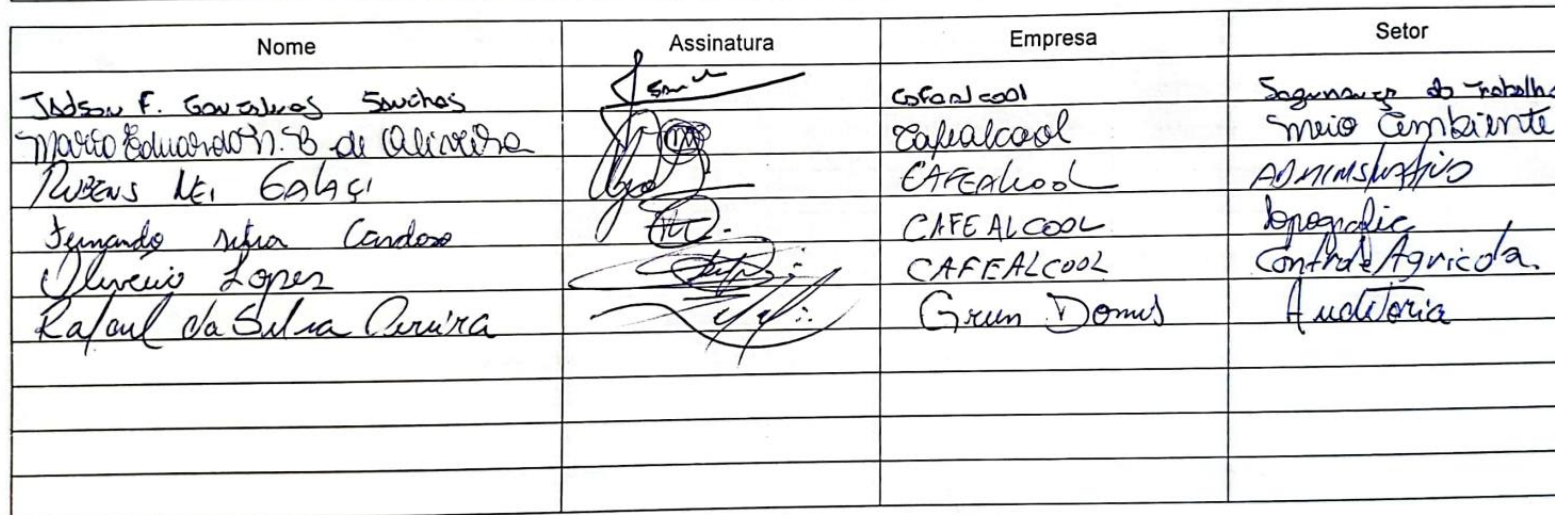 Nome Assinatura Empresa Setor
Jadson F. Gonçalves Sanches Cafealcool Segurança do Trabalho
Mario Eduardo N. B de Oliveira Cafealcool Meio Ambiente
RUBENS NEI CAFEALCOOL ADMINISTRATIVO
Fernando Cardoso CAFEALCOOL Topografia
Oliverio Lopes CAFEALCOOL Controle Agricola.
Rafael da Silva Pereira Green Domus Auditoria